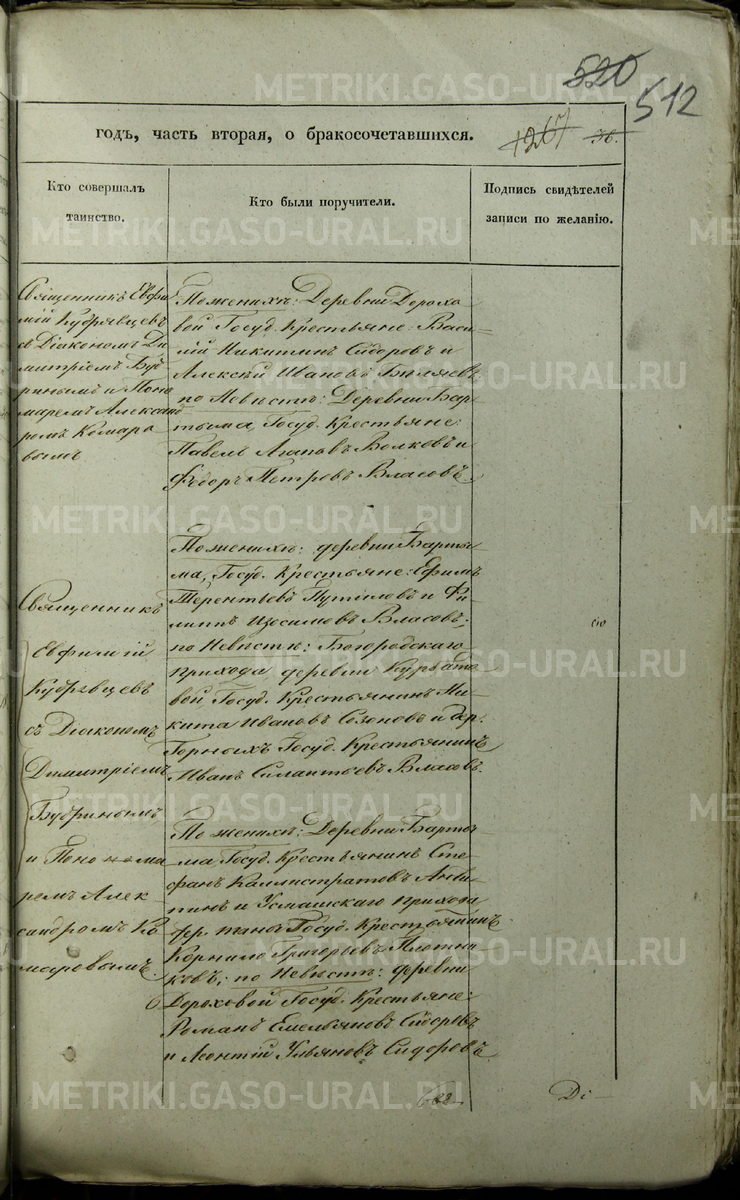 520
512
годъ, часть вторая, о бракосочетавшихся.
1267
36.
Кто совершалъ
таинство.
Кто были поручители.
Подпись свидѣтелей
записи по желанію.
Священникъ Евфи
мій Кудрявцевъ
съ Діакономъ Ди
митріемъ Буд
ринымъ и Поно
маремъ Александ
ромъ Комаро
вымъ
По женихѣ: Деревни Дорохо
вой Госуд. Крестьяне: Васи
лій Никитинъ Сидоровъ и
Алексѣй Беляевъ
по Невѣстѣ: Деревни Бар
тыма Госуд. Крестьяне:
Павелъ Агаповъ Волковъ и
Ѳедоръ Петровъ Власовъ.
Священникъ
Евфимій
Кудрявцевъ
съ Діакономъ
Димитріемъ
Будринымъ
и Понома
ремъ Алек
сандромъ Ко
маровымъ.
По женихѣ: деревни Барты
ма, Госуд. Крестьяне: Ефимъ
Терентьевъ Путиловъ и Фи
липъ Изосимовъ Власовъ;
по Невѣстѣ: Богородскаго
прихода деревни Курбато
вой Госуд. Крестьянинъ Ни
кита Ивановъ Созоновъ и дер.
Горныхъ Госуд. Крестьянинъ
Иванъ Силантьевъ Власовъ.
По женихѣ: Деревни Барты
ма Госуд. Крестьянинъ Сте
фанъ Каллистратовъ Анти
пинъ и прихода
дер. Госуд. Крестьянинъ
Корнило Григорьевъ Плотни
ковъ; по Невѣстѣ: деревни
Дороховой Госуд. Крестьяне:
Романъ Емельяновъ Сидоровъ
и Леонтій Ульяновъ Сидоровъ
METRIKI.GASO-URAL.RU